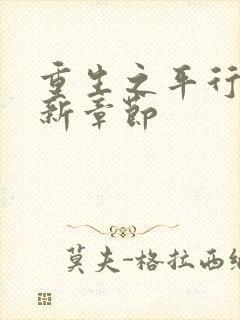 重生之平行
新章节
莫夫-格拉西